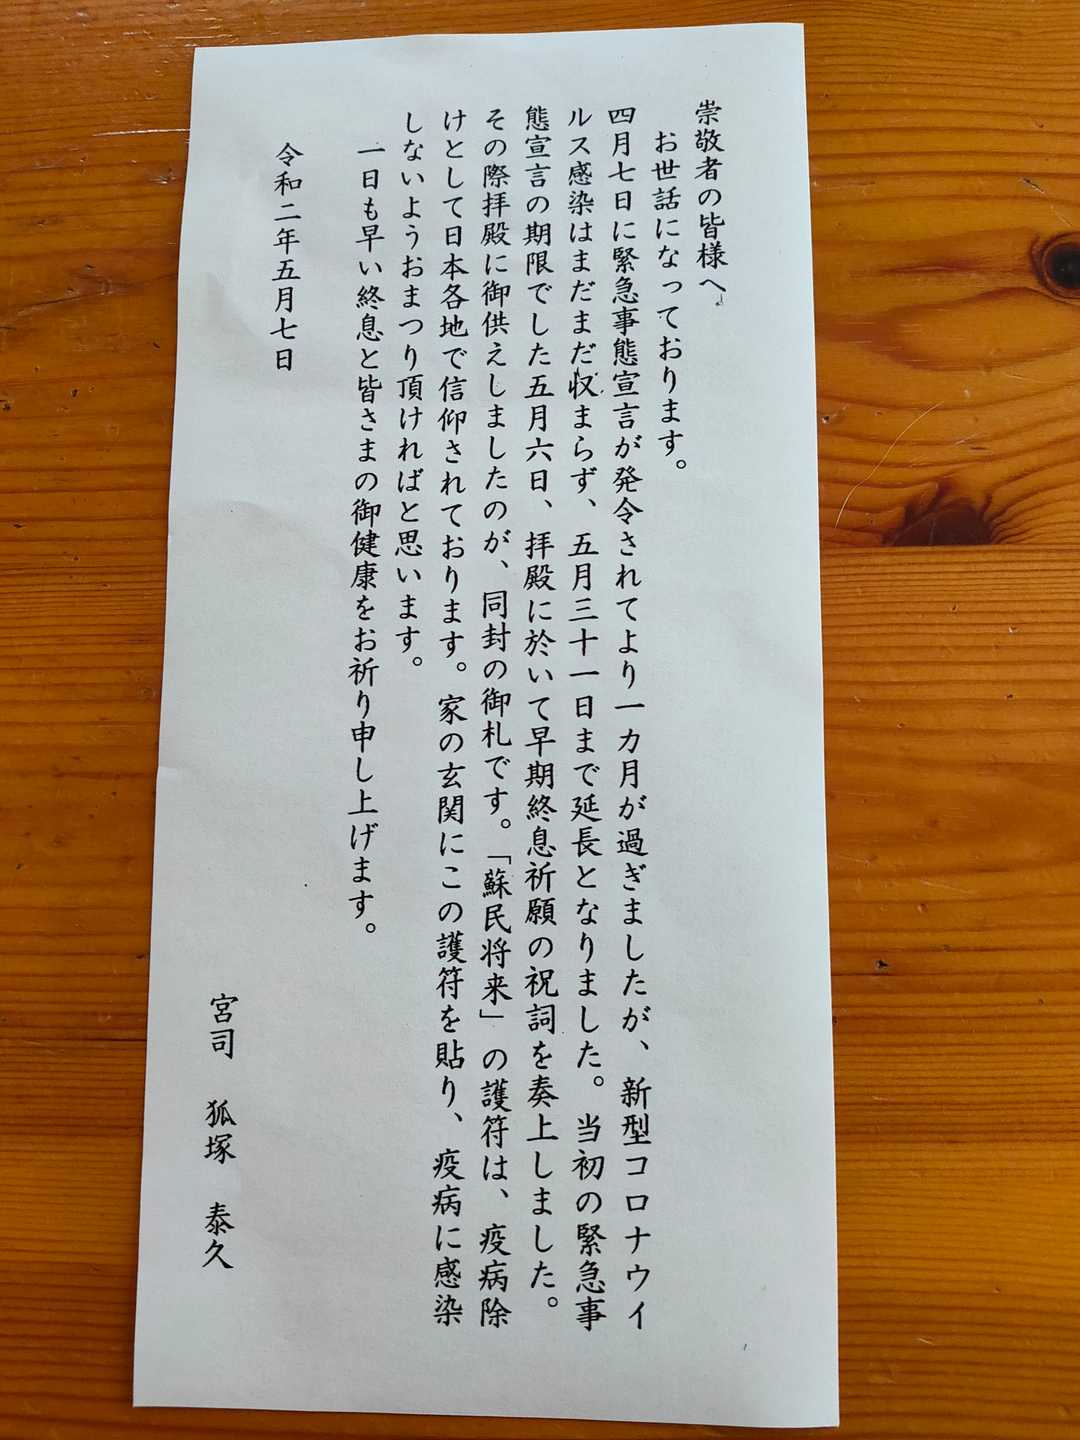 崇敬者の皆様へ
お世話になっております。
四月七日に緊急事態宣言が発令されてより一カ月が過ぎましたが、新型コロナウイ
ルス感染はまだまだ収まらず、五月三十一日まで延長となりました。当初の緊急事
態宣言の期限でした五月六日、拝殿に於いて早期終息祈願の祝詞を奏上しました。
その際拝殿に御供えしましたのが、同封の御札です。「蘇民将来」の護符は、疫病除
けとして日本各地で信仰されております。家の玄関にこの護符を貼り、疫病に感染
しないようおまつり頂ければと思います。
一日も早い終息と皆さまの御健康をお祈り申し上げます。
令和二年五月七日
宮司　狐塚　泰久